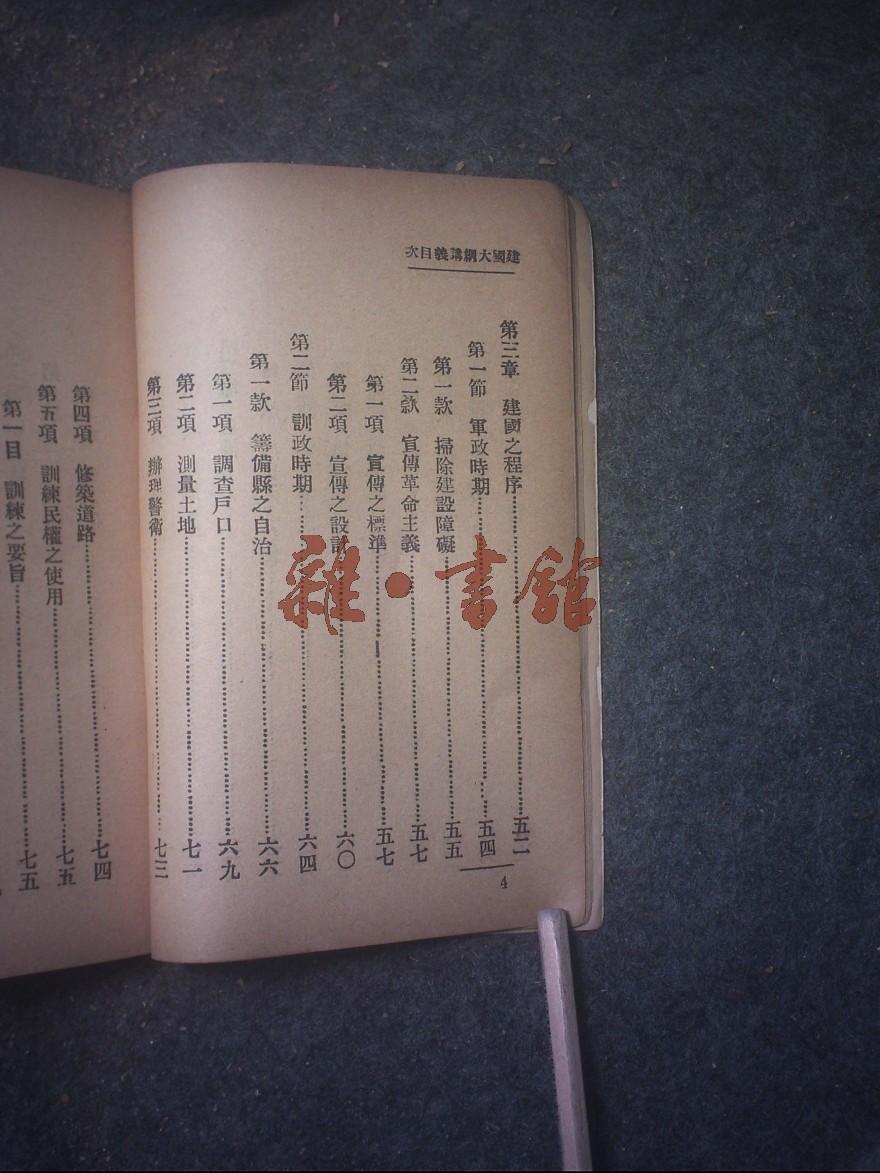 建國大綱講義目次
第三章　建國之程序……五二
第一節　軍政時期……五四
第一款　掃除建設障礙……五五
第二款　宣傳革命主義……五七
第一項　宣傳之標準……五七
第二項　宣傳之設計……六〇
第二節　訓政時期……六四
第一款　籌備縣之自治……六六
第一項　調查戶口……六九
第二項　測量土地……七一
第三項　辦理警衛……七三
4
第四項　修築道路……七四
第五項　訓練民權之使用……七五
第一目　訓練之要旨……七五
雜·書館